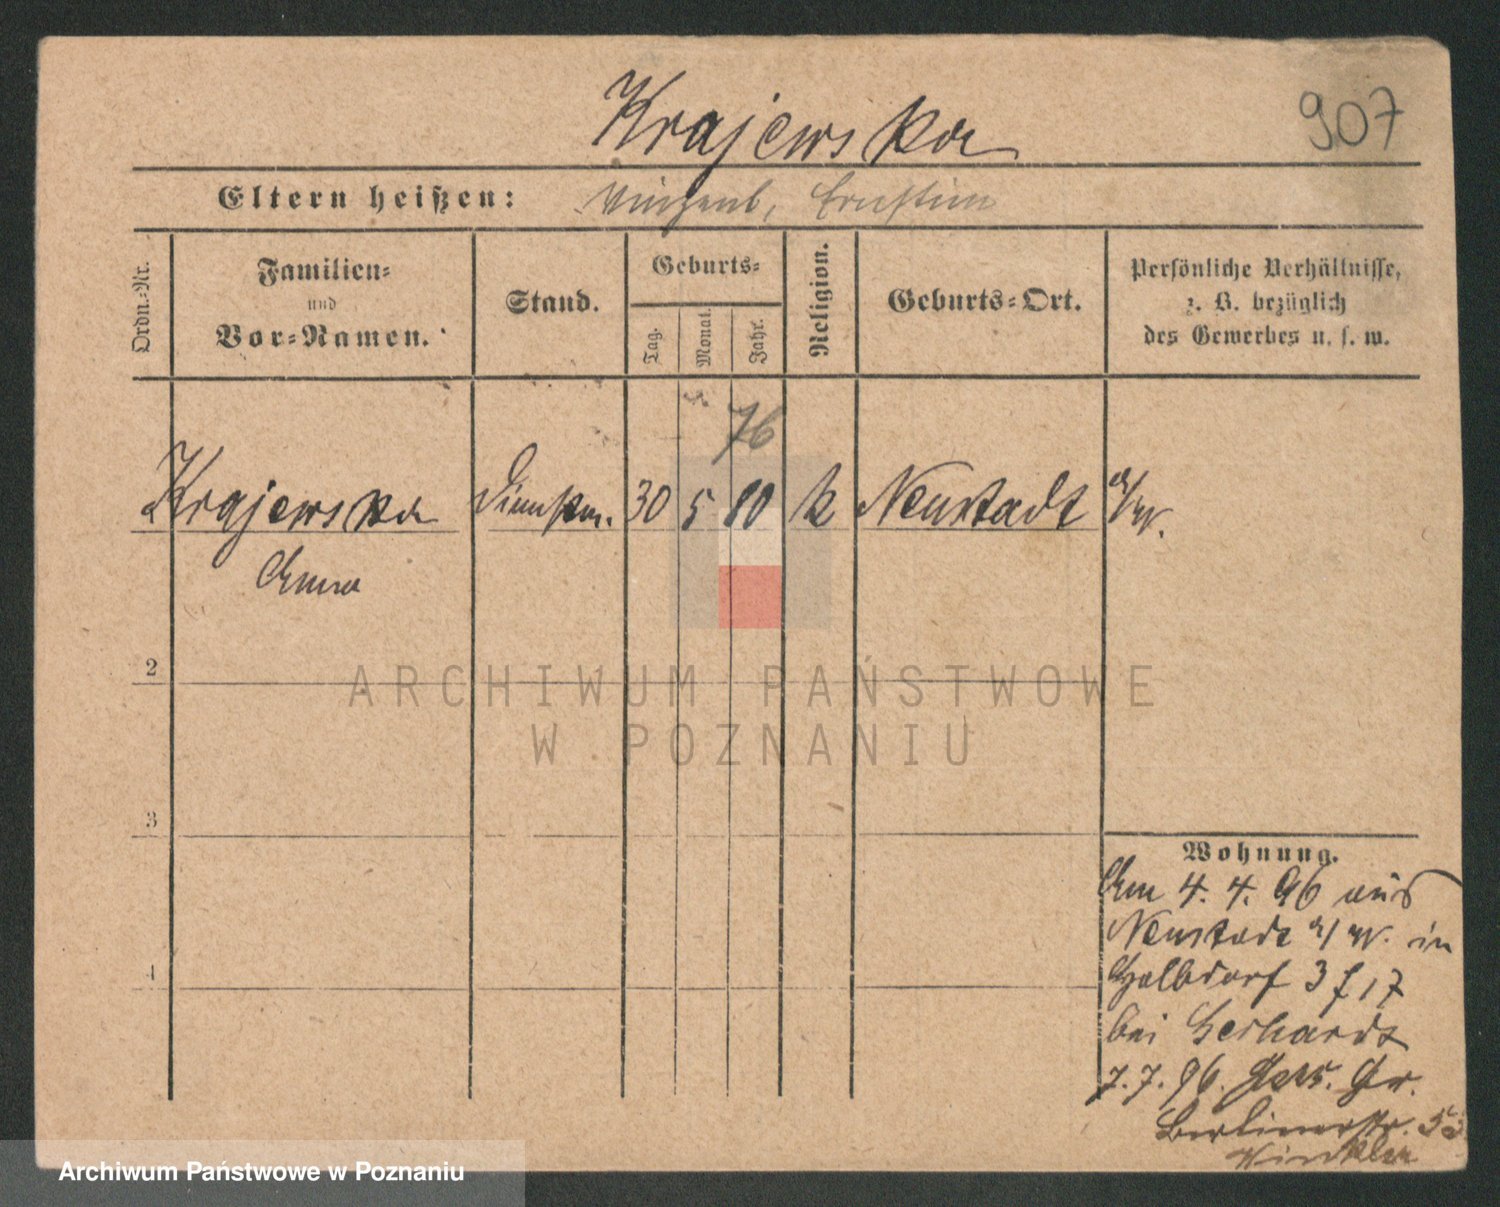 Krajewska
907
Eltern heißen: Vinzent, Ernstine
Ordn.-Nr.
Familien-
und
Vor-Namen.
Stand.
Geburts-
Tag.
Monat.
Jahr.
Religion.
Geburts-Ort.
Persönliche Verhältnisse,
z. B. bezüglich
des Gewerbes u. s. w.
76
Krajewska 30 5 80 k Neustadt a/W.
Anna
2
3
4
Wohnung.
Am 4. 4. 96 aus
Neustadt a/W. in
Halbdorf 3 17
bei Gerhardt
7. 7. 96.
Berlinerstr. 53
Winkler
ARCHIWUM PAŃSTWOWE
W POZNANIU
Archiwum Państwowe w Poznaniu